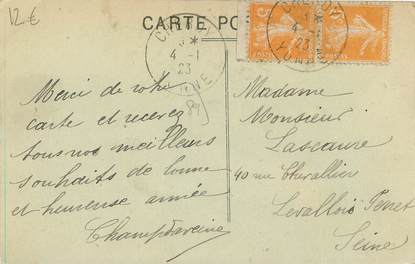 12€
CARTE PO
CHENOY
4-1
23
YONNE
5
5
CHENOY
4-1
23
YONNE
Merci de votre
carte et recevez
tous nos meilleurs
souhaits de bonne
et heureuse année
Champdavoine
Madame
Monsieur
Lascaure
40 rue Chevallier
Levallois Perret
Seine